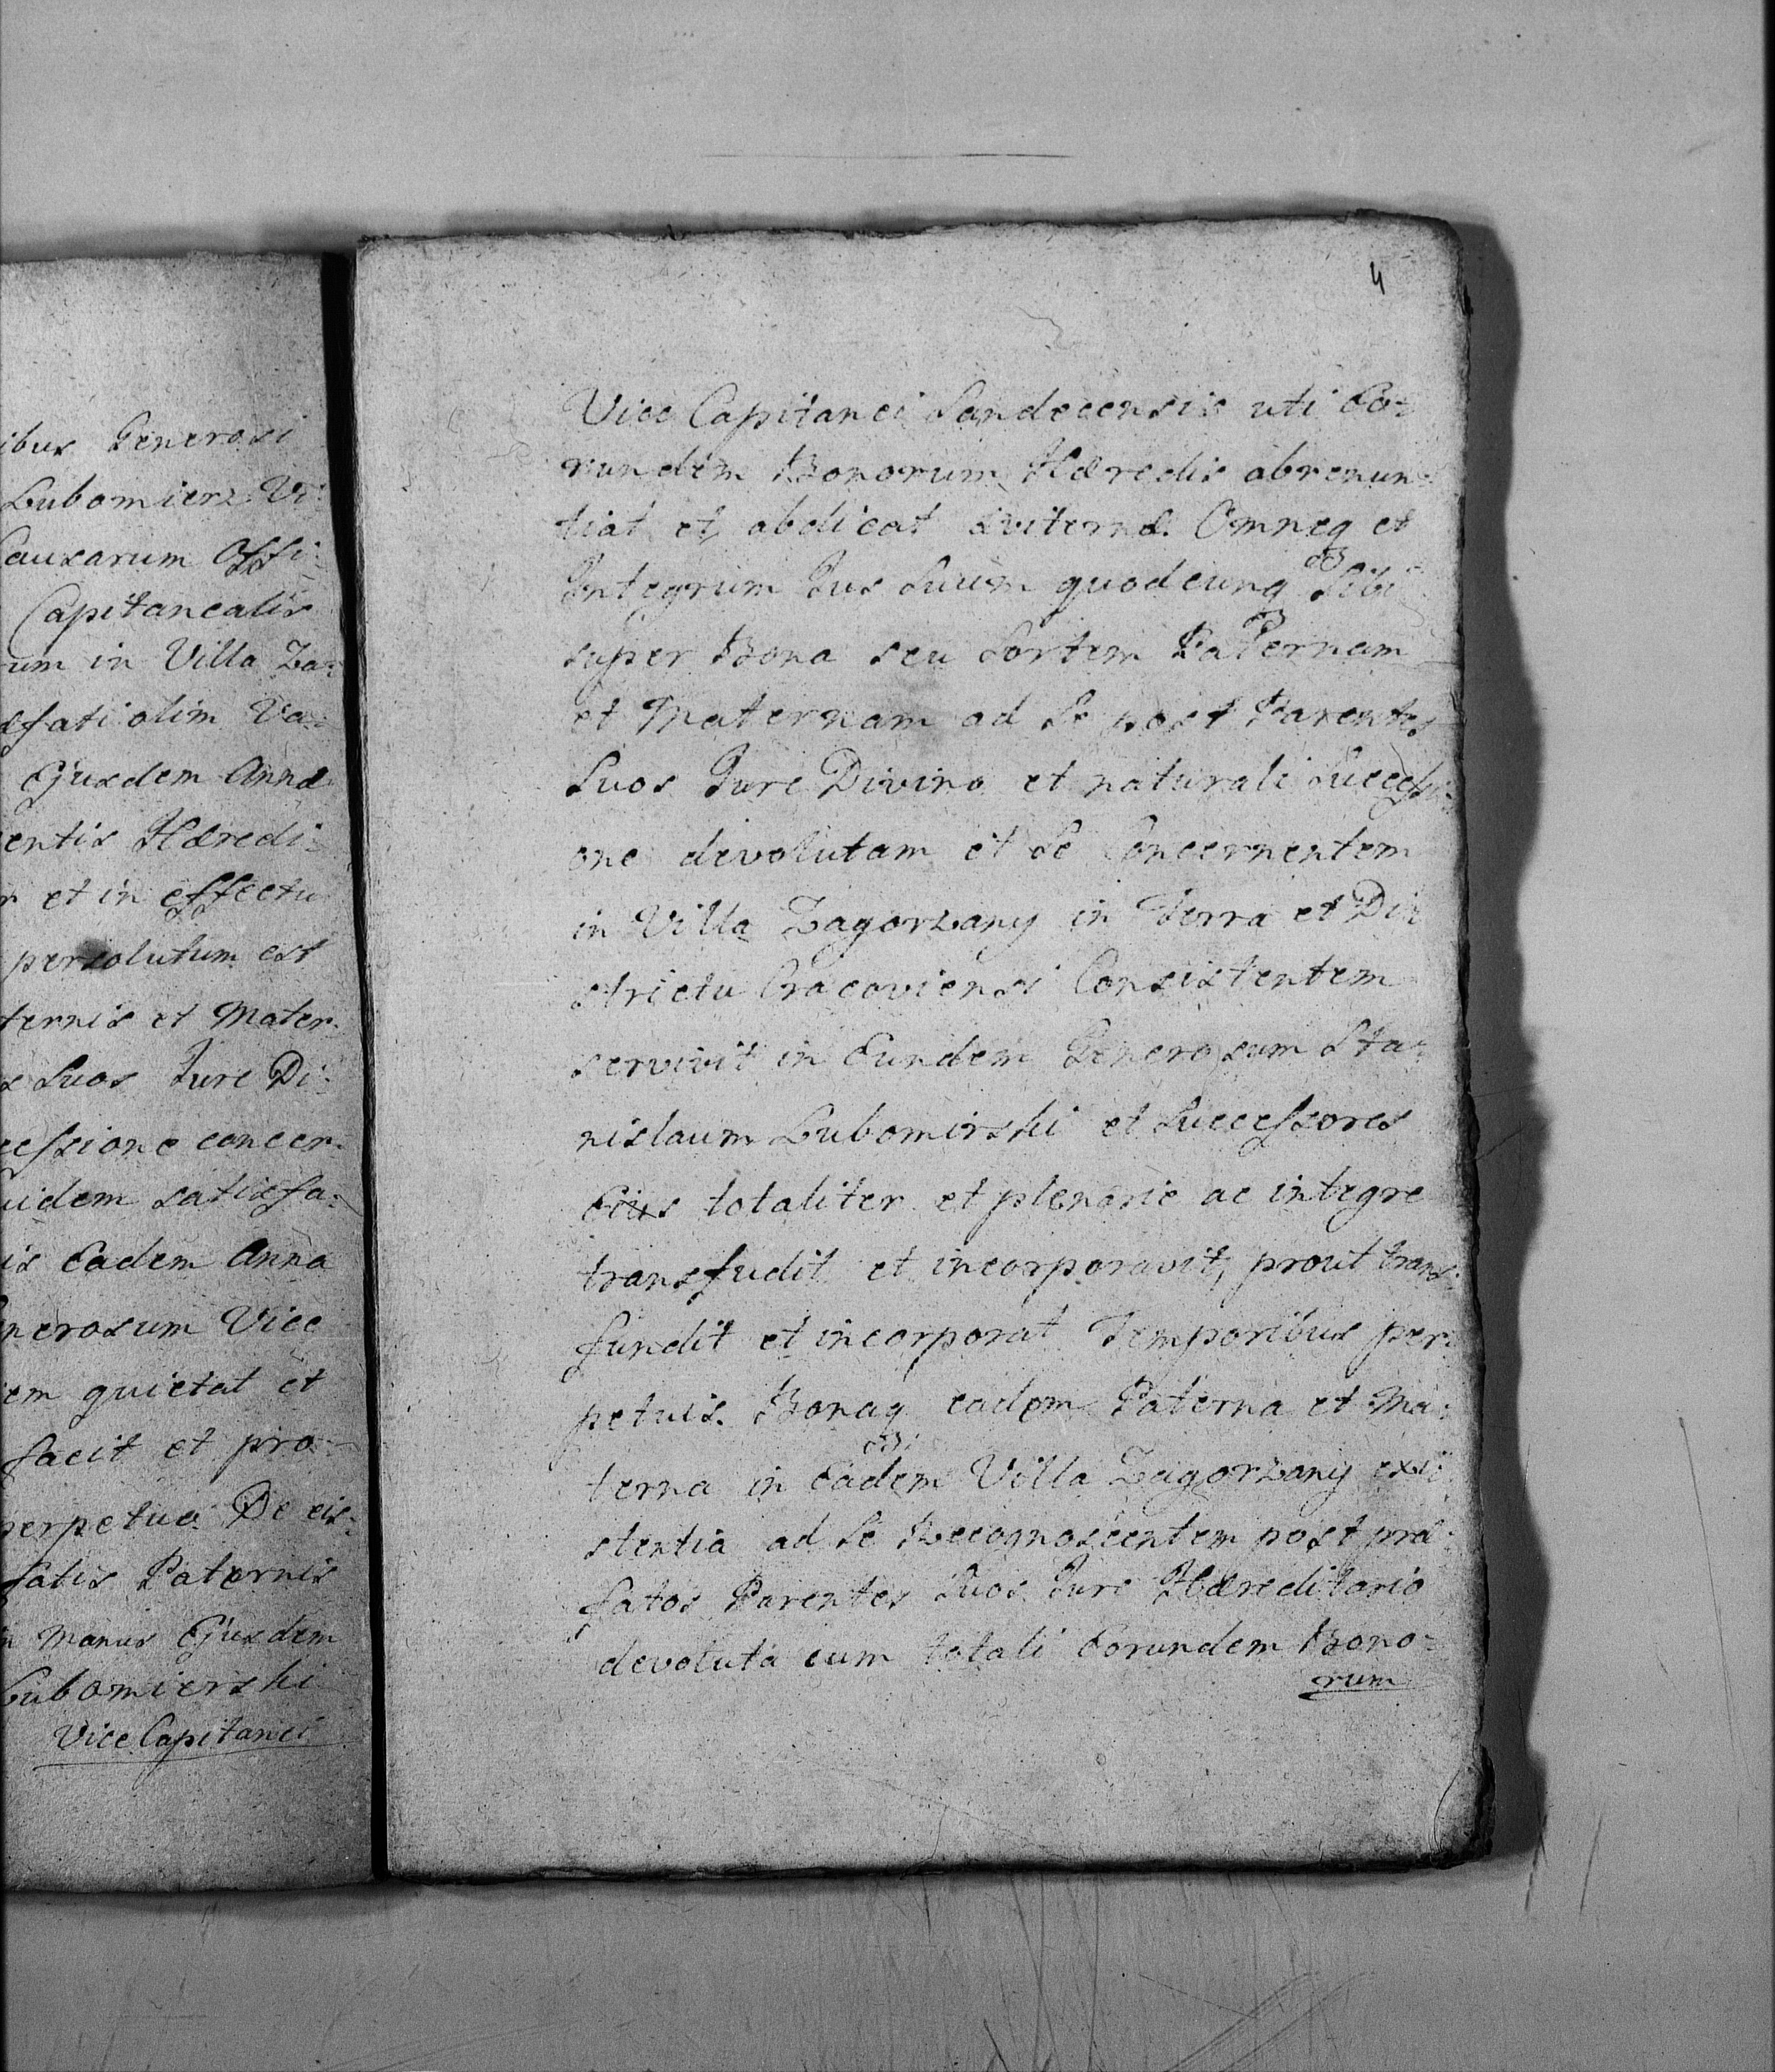 ibus Generosi
Lubomierz Vi:
Causarum Offi:
Capitanealis
rum in Villa Za:
æfati olim Va:
Ejusdem Annæ
entis Hæredi:
r et in effectu
persolutum est
ternis et Mater:
s Suos Jure Di:
cessione concer:
uidem satisfa:
is Eadem Anna
nerosum Vice
em quietat et
facit et pro
perpetuo. De eis:
fatis Paternis
n manus Ejusdem
Lubomierski
Vice Capitanei
4
Vice Capitanei Sandecensis uti Eo:
rundem Bonorum Hæredis abrenun:
tiat et abdicat æviternè. Omneq et
Integrum Jus Suum quodcunq Sibi
super Bona seu Sortem Paternam
et Maternam ad Se post Parentes
Suos Jure Divino et naturali Successi:
one devolutam et Se Concernentem
in Villa Zagorzany in Terra et Dis
strictu Cracoviensi Consistentem
servivit in Eundem Generosum Sta:
nislaum Lubomirski et Successores
Eius totaliter et plenarie ac integre
transfudit et incorporavit, prout trans:
fundit et incorporat Temporibus per:
petuis. Bonaq eadem Paterna et Ma:
terna in Eadem Villa Zagorzany exi:
stentia ad Se Recognoscentem post præ:
fatos Parentes Suos Jure Hæreditario
devoluta cum totali Eorundem Bono:
rum